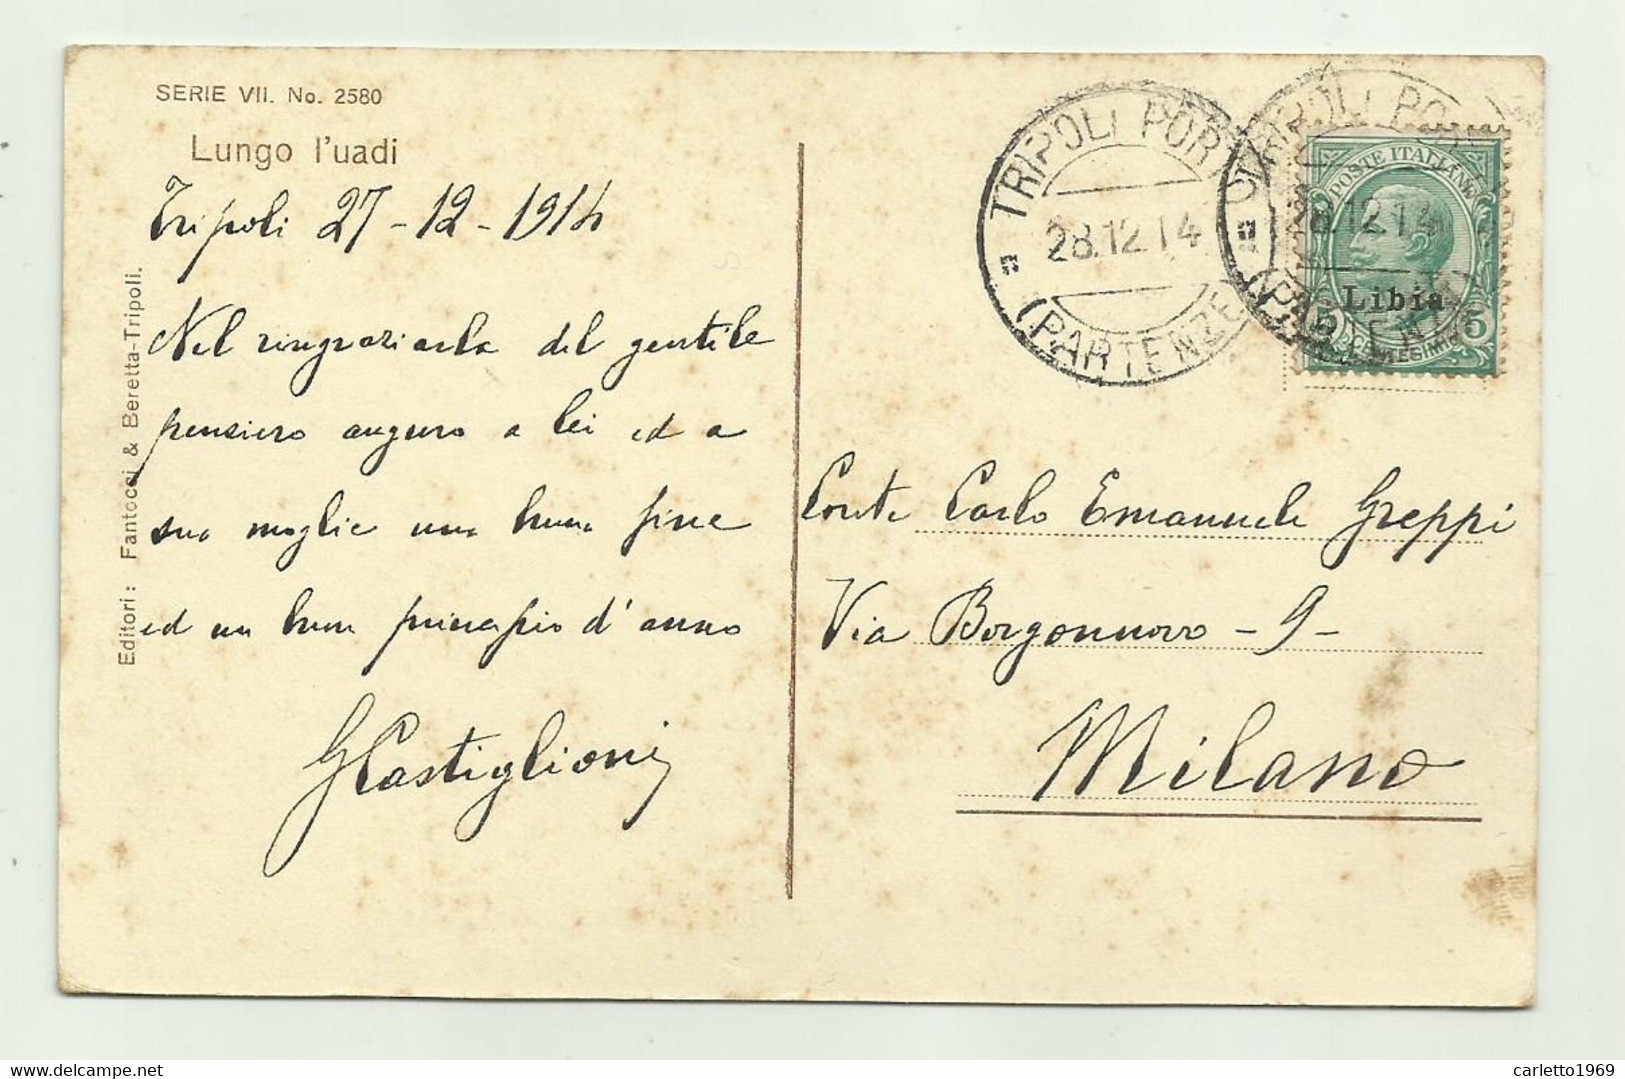 SERIE VII. No. 2580
Lungo l'uadi
Tripoli 27-12-1914
Nel ringraziarla del gentile
pensiero auguro a lei ed a
sua moglie una buona fine
ed un buon principio d'anno
GCastiglioni
Editori: Fantocci & Beretta-Tripoli.
TRIPOLI PORT
28.12.14
(PARTENZE)
TRIPOLI PORT
28.12.14
(PARTENZE)
POSTE ITALIANE
Libia
5 5
CENTESIMI
Conte Carlo Emanuele Greppi
Via Borgonuovo - 9 -
Milano
carletto1969